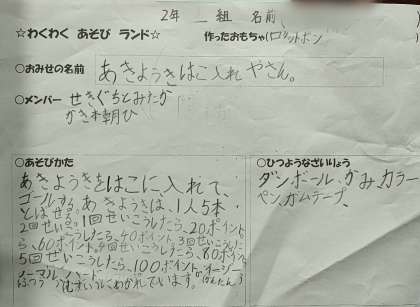 2年 組 名前
☆わくわく あそび ランド☆ 作ったおもちゃ(ロケットポン
○おみせの名前 あきようきはこ入れやさん。
○メンバー せきぐちとみたか
かき本朝ひ
○あそびかた
あきようきをはこに、入れて、
ゴールする。あきようきは、1人5本
とばせる。1回せいこうしたら、20ポイント
2回せいこうしたら、40ポイント、3回せいこうした
ら、60ポイント、4回せいこうしたら、80ポイント
5回せいこうしたら、100ポイント。イージー
ノーマル、ハード、かんたん
ふつう、むずかしいにわかれています。
○ひつようなざいりょう
ダンボール、かみ、カラー
ペン、ガムテープ、